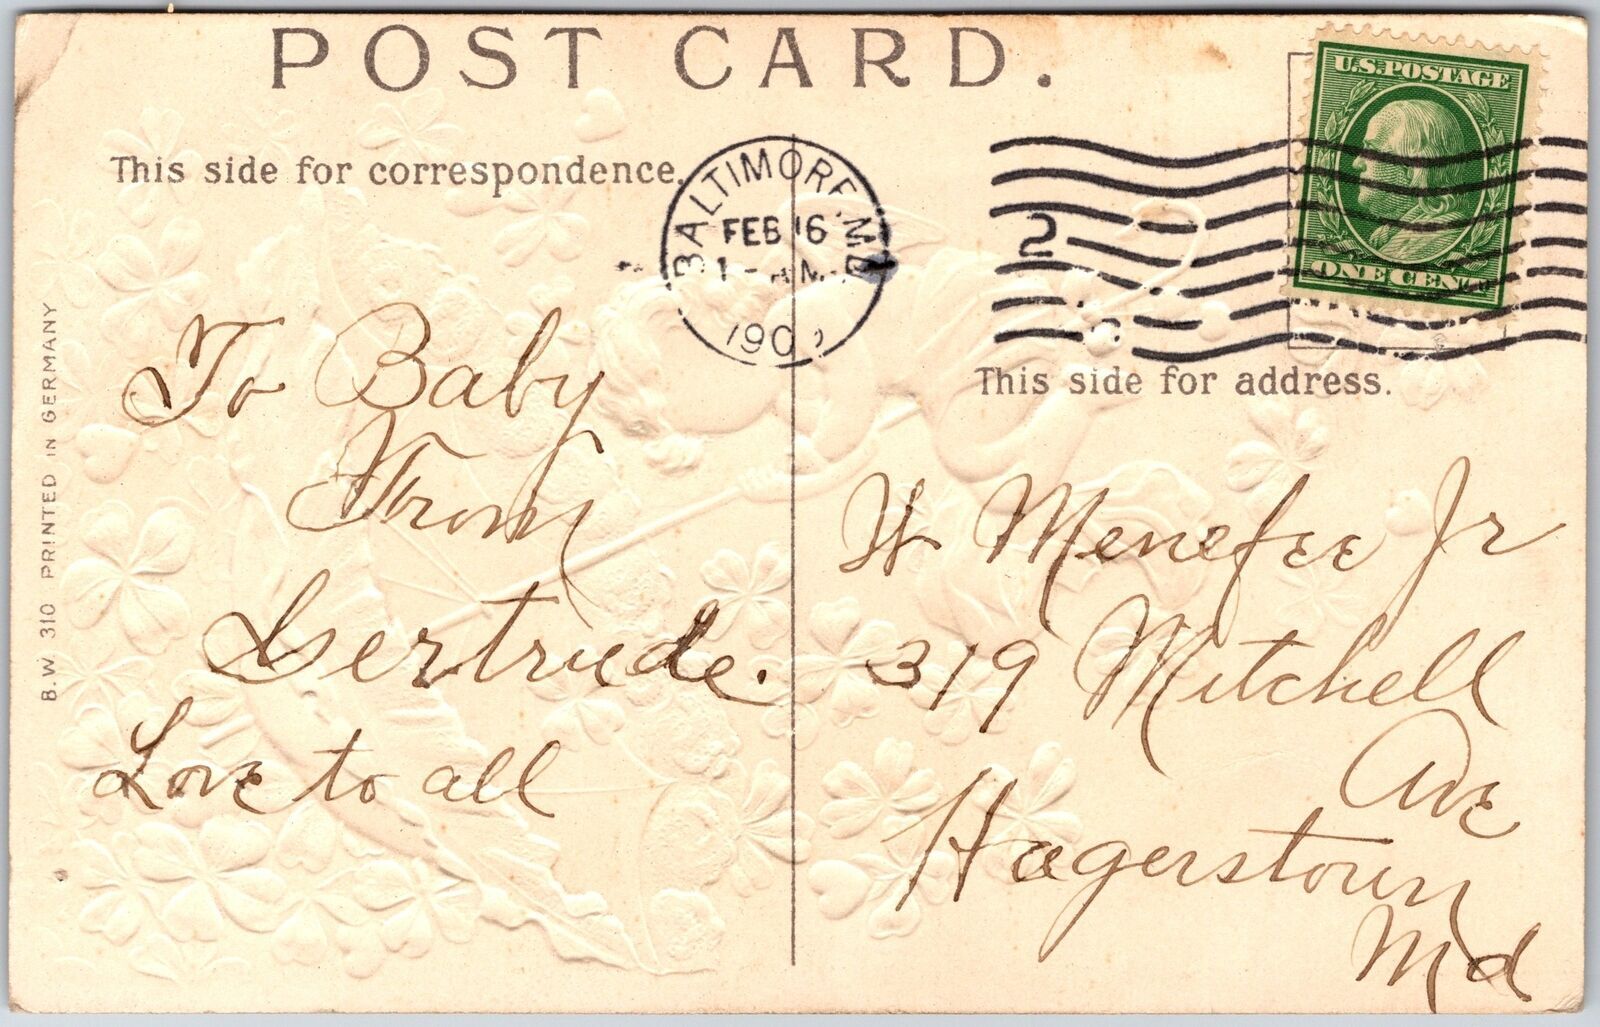 POST CARD.
This side for correspondence.
BALTIMORE, MD
FEB 16
1 - AM
190
2
U.S. POSTAGE
ONE CENT
This side for address.
To Baby
From
Gertrude.
Love to all
W Menefee Jr
319 Mitchell
Ave
Hagerstown
Md
B.W. 310 PRINTED IN GERMANY